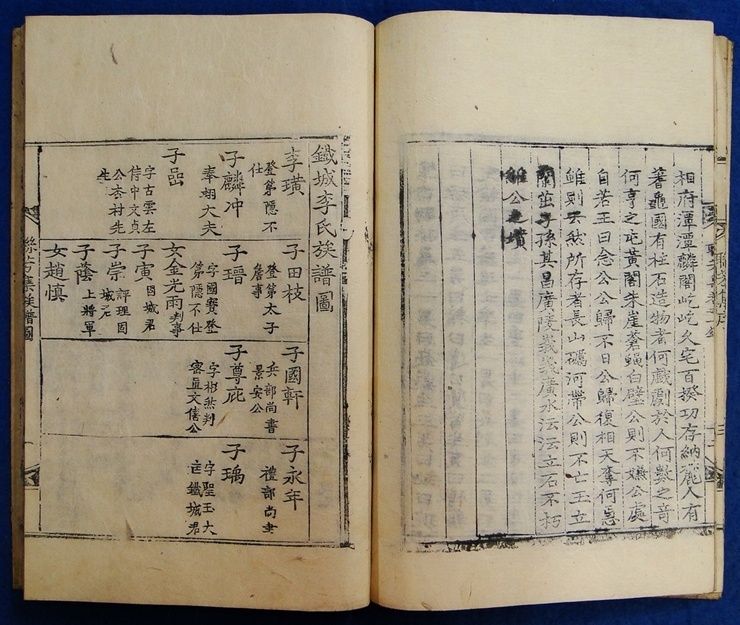 相府潭潭麟閣屹屹久宅百揆功存納麓人有
蓍龜國有柱石造物者何戲劇於人何數之奇
何亨之屯黃閣朱崖蒼蠅白璧公則不嫌公處
自若王曰念公公歸不日公歸復相天奪何忽
雖則夭然所存者長山礪河帶公則不亡王立
子孫其昌廣陵峩峩廣水沄沄立石不朽
公之墳
鐵城李氏族譜圖
李璜
登第隱不
仕
子麟冲
奉翊大夫
子嵒
字古雲左
侍中文貞
公杏村先
生
子田枝
登第太子
詹事
子瑨
字國賓登
第隱不仕
女金光雨判事
子寅
固城君
子崇
評理固
城君
子蔭
上將軍
女趙愼
子國軒
兵部尚書
景安公
子尊庇
字
密直文僖公
子永年
禮部尚書
子瑀
字聖玉大
匡鐵城君
族譜圖